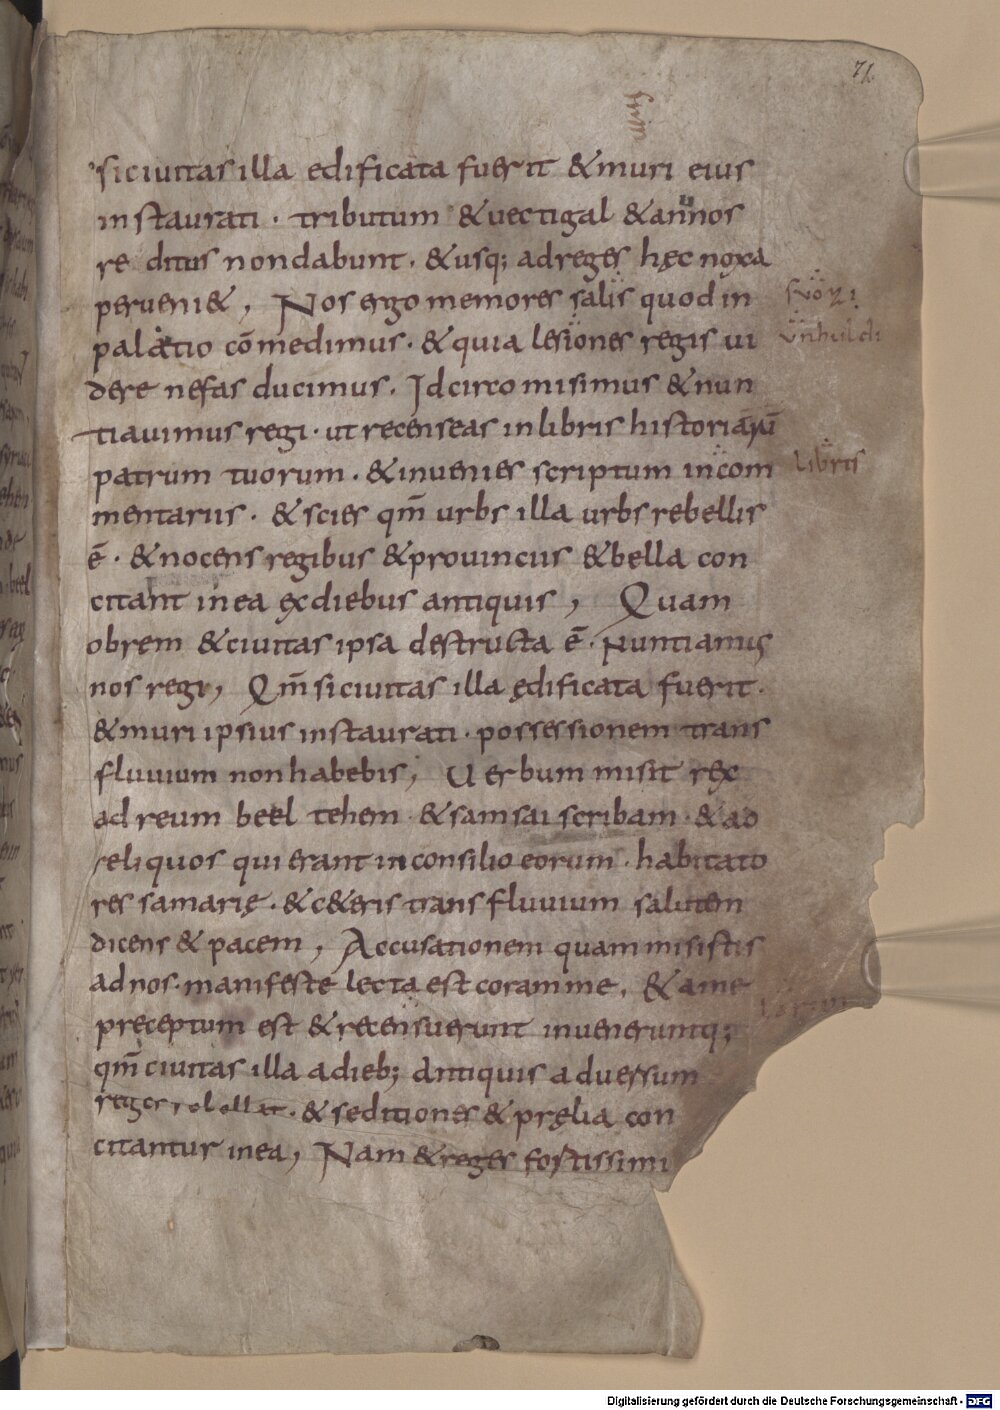 71
si ciuitas illa edificata fuerit & muri eius
instaurati · tributum & uectigal & annos
re ditus nondabunt · & usq; adreges hęc noxa
perueni&, Nos ergo memores salis quod in
palatio cōmedimus · & quia lesiones regis ui
dere nefas ducimus. Idcirco misimus & nun
tiauimus regi · ut recenseas inlibris historiarū
patrum tuorum · & inuenies scriptum incom
libris
mentariis · & scies qm̄ urbs illa urbs rebellis
ē · & nocens regibus & prouinciis & bella con
citant inea exdiebus antiquis, Quam
obrem & ciuitas ipsa destructa ē. Nuntiamus
nos regi, Qm̄ si ciuitas illa ędificata fuerit.
& muri ipsius instaurati · possessionem trans
fluuium non habebis, Uerbum misit rex
ad reum beel tehem & samsai scribam & ad
reliquos qui erant inconsilio eorum · habitato
res samarię · & c&eris trans fluuium salutem
dicens & pacem, Accusationem quam misistis
adnos · manifeste lecta est coram me, & ame
preceptum est & recensuerunt inueneruntq;
qm̄ ciuitas illa adieb; antiquis aduersum
reges rebellat · & seditiones & pręlia con
citantur inea, Nam & reges fortissimi
Digitalisierung gefördert durch die Deutsche Forschungsgemeinschaft - DFG